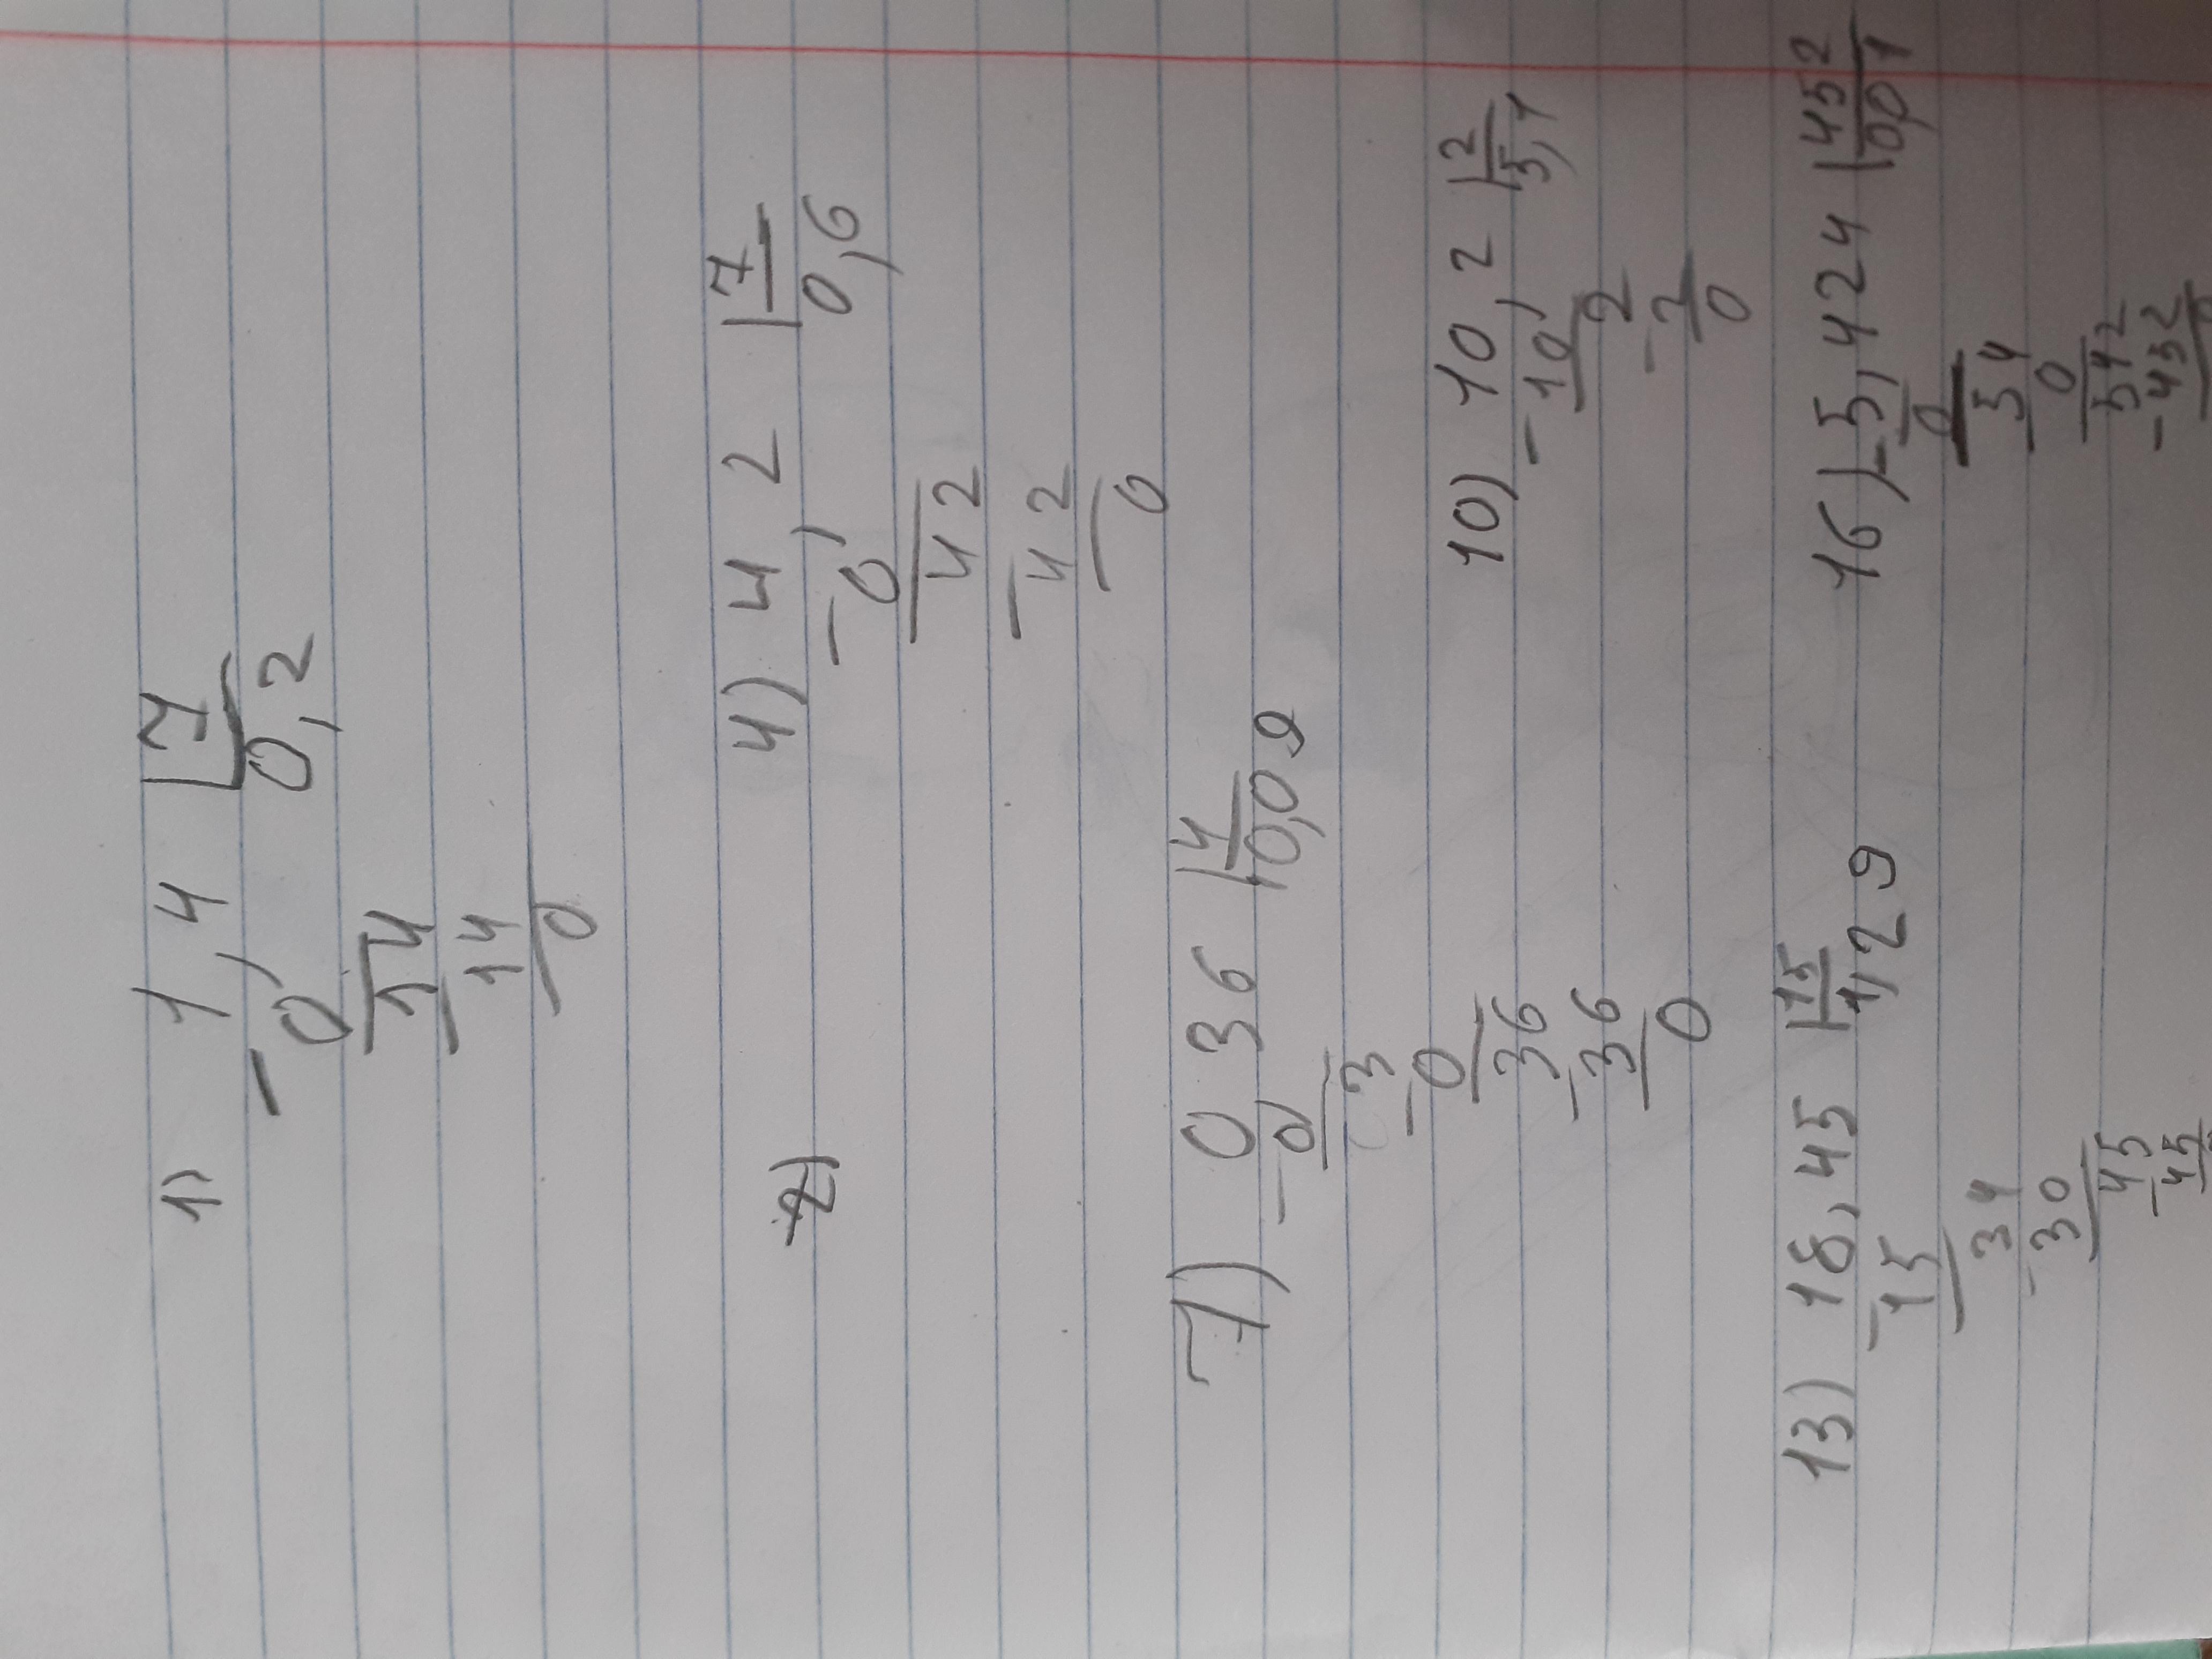 1) 1,4 7
- 0 0,2
14
- 14
0
2)
4) 4,2 7
- 0 0,6
42
- 42
0
7) 0,36 4
- 0 0,09
3
- 0
36
- 36
0
10) 10,2 2
- 10 5,1
2
- 2
0
13) 18,45 15
- 15 1,29
34
- 30
45
- 45
16) - 5,424 452
0 0,01
54
- 0
542
- 452